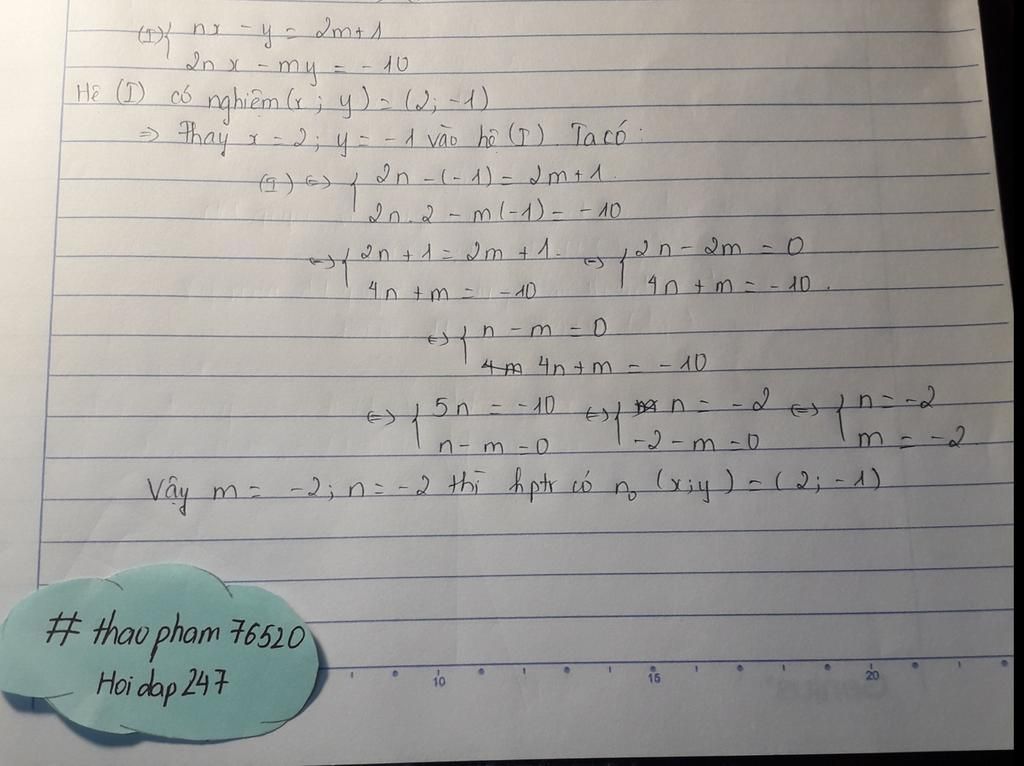 (I) { nx - y = 2m+1
2n x - my = -10
Hệ (I) có nghiệm (x ; y) = (2; -1)
=> Thay x = 2; y = -1 vào hệ (I). Ta có:
(I) <=> { 2n - (-1) = 2m+1.
2n. 2 - m(-1) = -10
<=> { 2n + 1 = 2m + 1. <=> { 2n - 2m = 0
4n + m = -10 4n + m = -10.
<=> { n - m = 0
4m 4n + m = -10
<=> { 5n = -10 <=> { n = -2 <=> { n = -2
n - m = 0 -2 - m = 0 m = -2
Vậy m = -2; n = -2 thì hptr có n₀ (x;y) = (2; -1)
# thaopham 76520
Hoidap 247
10 15 20